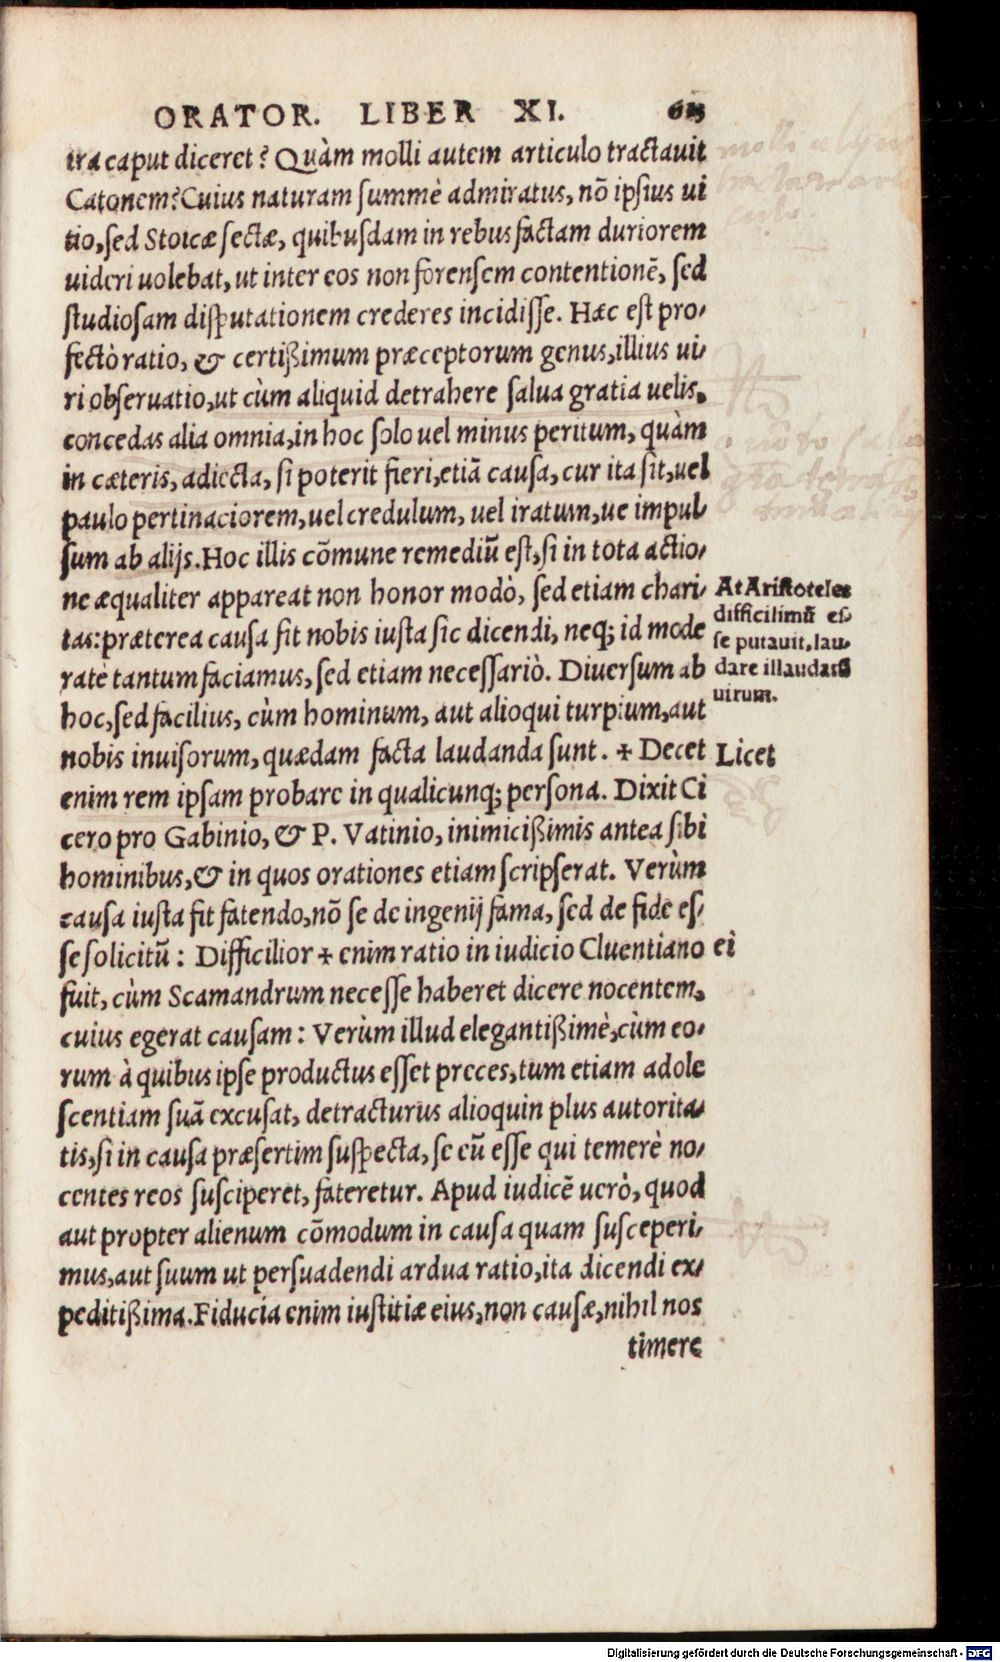 ORATOR. LIBER XI.
tra caput diceret? Quàm molli autem articulo tractauit
Catonem? Cuius naturam summè admiratus, nõ ipsius ui
tio, sed Stoicæ sectæ, quibusdam in rebus factam duriorem
uideri uolebat, ut inter eos non forensem contentionẽ, sed
studiosam disputationem crederes incidisse. Hæc est pro-
fectò ratio, & certißimum præceptorum genus, illius ui-
ri obseruatio, ut cùm aliquid detrahere salua gratia uelis,
concedas alia omnia, in hoc solo uel minus peritum, quàm
in cæteris, adiecta, si poterit fieri, etiã causa, cur ita sit, uel
paulo pertinaciorem, uel credulum, uel iratum, ue impul-
sum ab alijs. Hoc illis cõmune remediũ est, si in tota actio-
ne æqualiter appareat non honor modò, sed etiam chari-
tas: præterea causa sit nobis iusta sic dicendi, neq; id mode
ratè tantum faciamus, sed etiam necessariò. Diuersum ab
hoc, sed facilius, cùm hominum, aut alioqui turpium, aut
nobis inuisorum, quædam facta laudanda sunt. ✢ Decet
enim rem ipsam probare in qualicunq; persona. Dixit Ci
cero pro Gabinio, & P. Vatinio, inimicißimis antea sibi
hominibus, & in quos orationes etiam scripserat. Verùm
causa iusta fit fatendo, nõ se de ingenij fama, sed de fide es-
se solicitũ: Difficilior ✢ enim ratio in iudicio Cluentiano
fuit, cùm Scamandrum necesse haberet dicere nocentem,
cuius egerat causam: Verùm illud elegantißimè, cùm eo-
rum à quibus ipse productus esset preces, tum etiam adole
scentiam suã excusat, detracturus alioquin plus autorita-
tis, si in causa præsertim suspecta, se eũ esse qui temerè no-
centes reos susciperet, fateretur. Apud iudicẽ uerò, quod
aut propter alienum cõmodum in causa quam susceperi-
mus, aut suum ut persuadendi ardua ratio, ita dicendi ex-
peditißima. Fiducia enim iustitiæ eius, non causæ, nihil nos
timere
At Aristoteles
difficilimũ es-
se putauit, lau-
dare illaudatũ
uirum.
Licet
ei
Digitalisierung gefördert durch die Deutsche Forschungsgemeinschaft - DFG